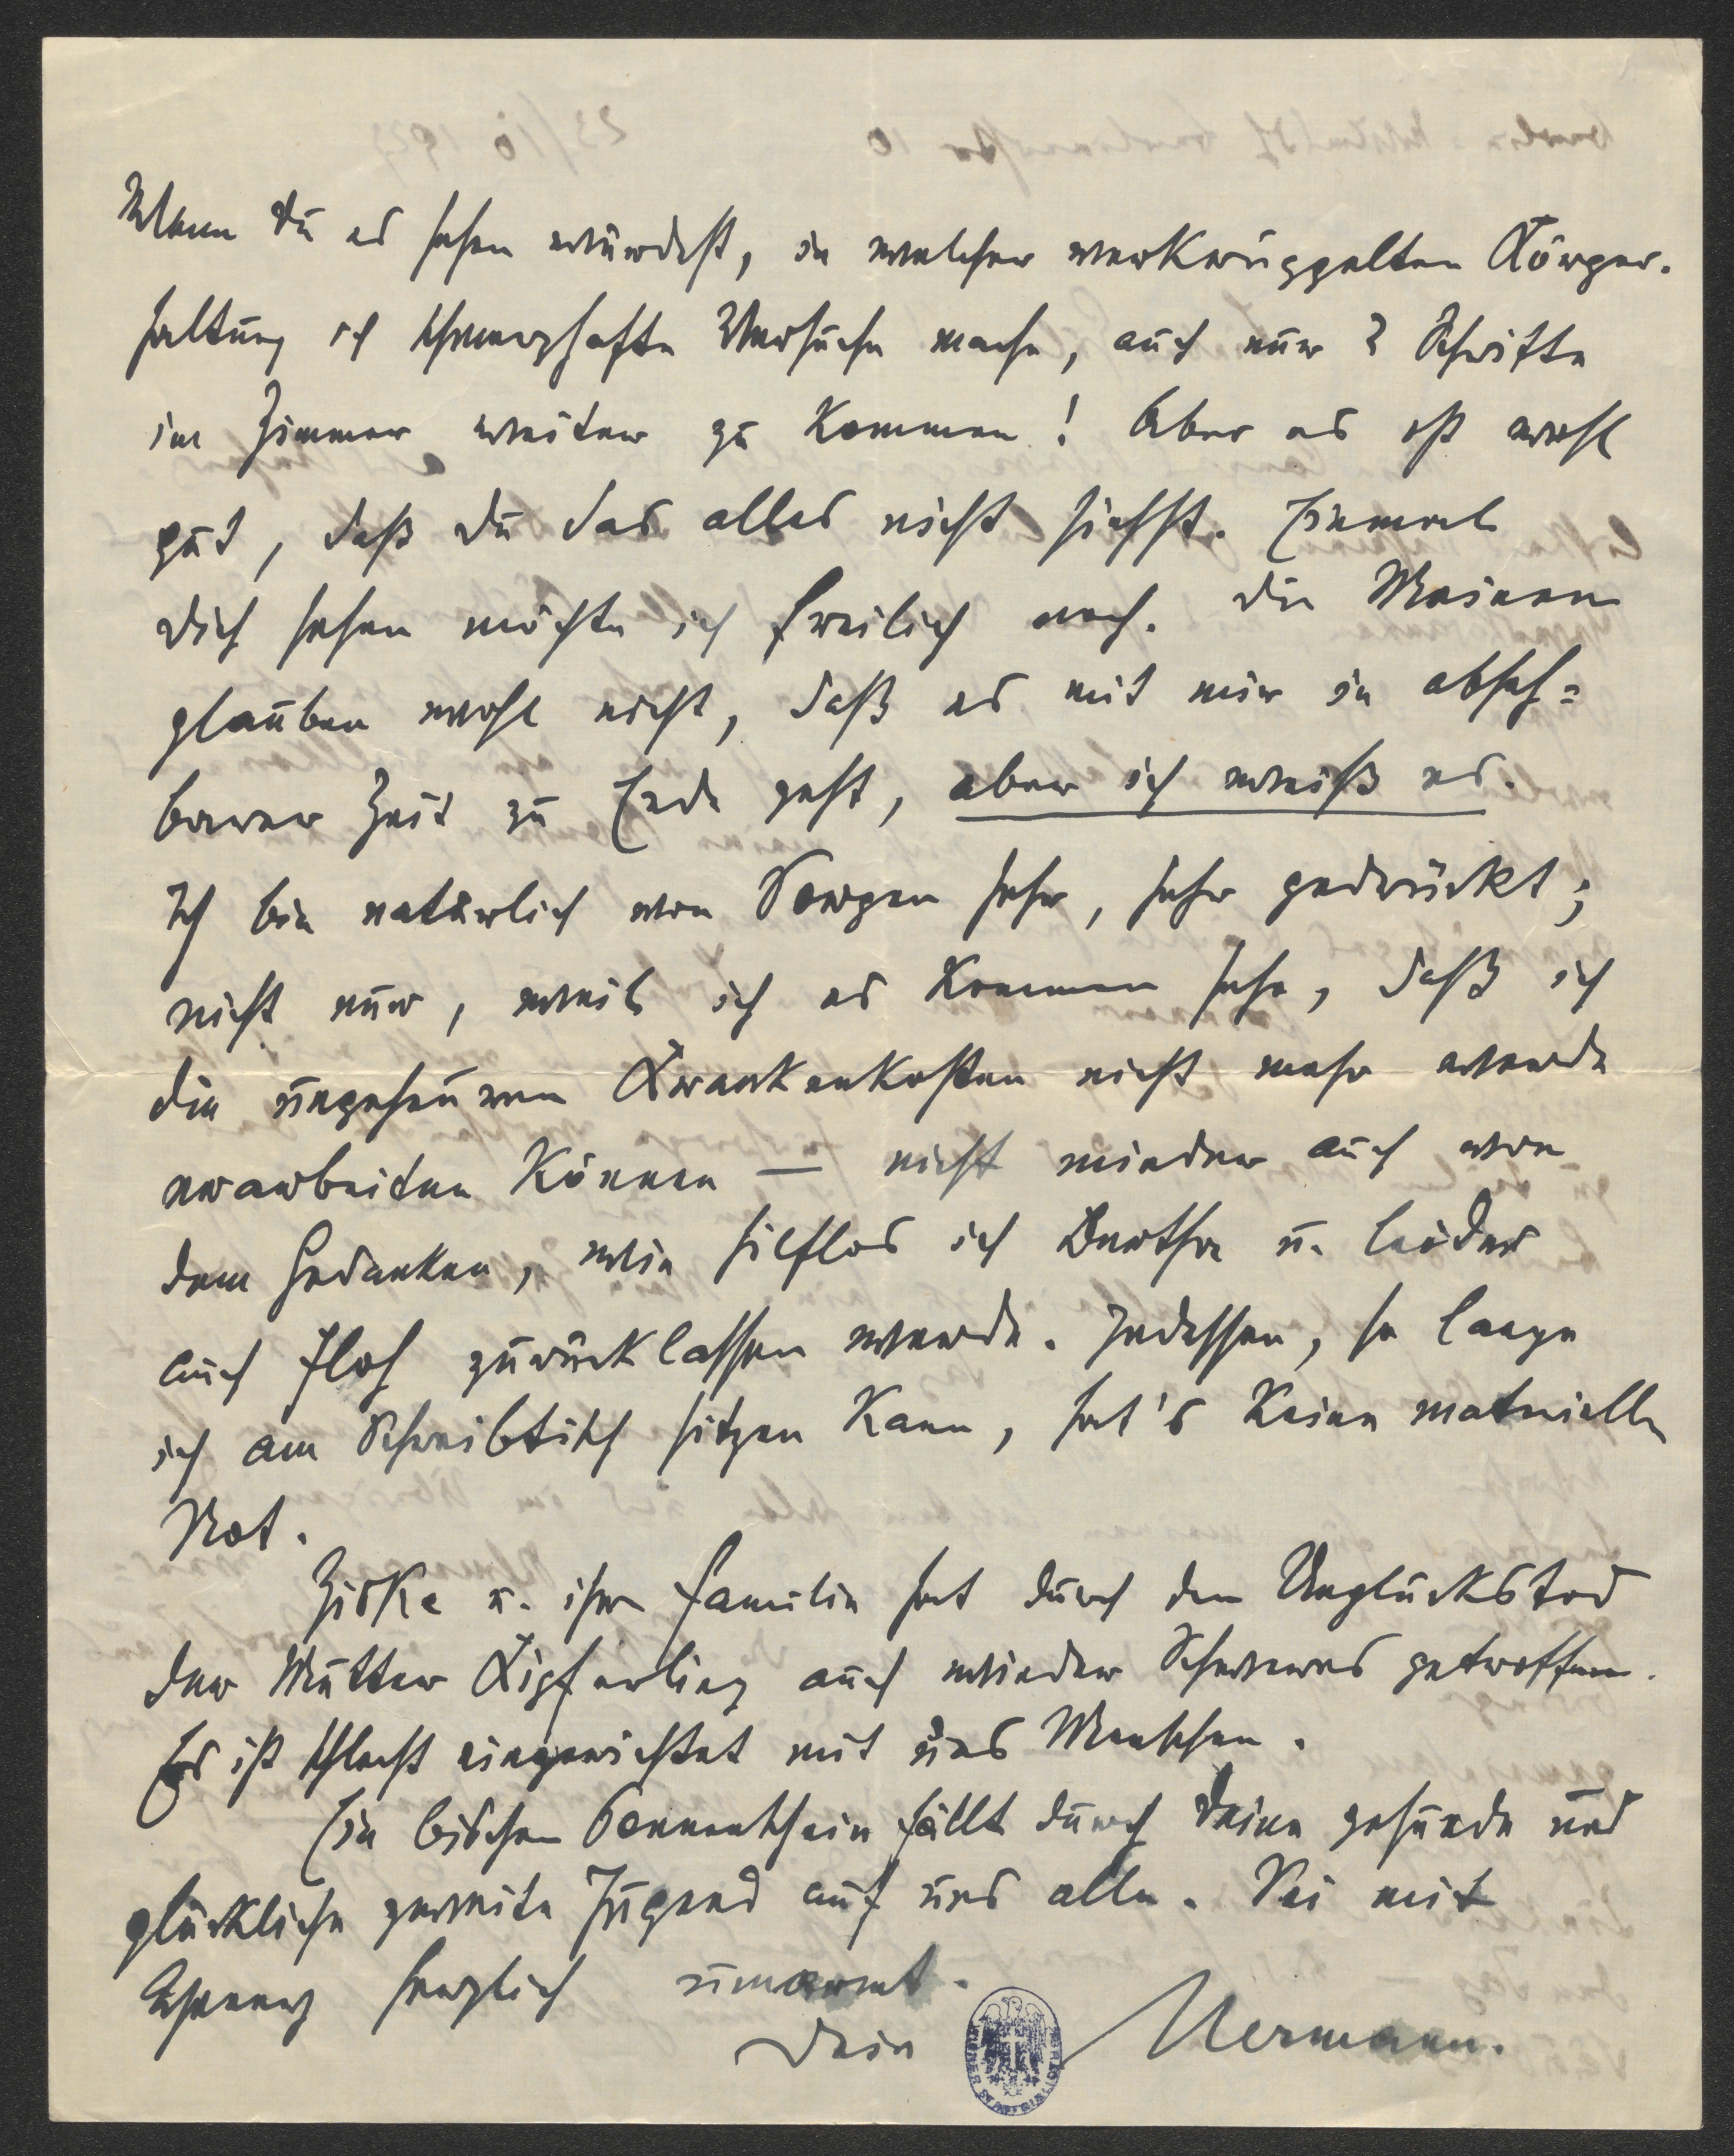 Wenn Du es sehen würdest, in welcher verkrüppelten Körper-
haltung ich schmerzhafte Versuche mache, auch nur 2 Schritte
im Zimmer weiter zu kommen! Aber es ist wohl
gut, daß Du das alles nicht siehst. Einmal
Dich sehen möchte ich freilich noch. Die Meinen
glauben wohl nicht, daß es mit mir in abseh=
barer Zeit zu Ende geht, aber ich weiß es.
Ich bin natürlich von Sorgen sehr, sehr gedrückt;
nicht nur, weil ich es kommen sehe, daß ich
die ungeheuren Krankenkosten nicht mehr werde
erarbeiten können — nicht minder auch von
dem Gedanken, wie hilflos ich Bertha u. leider
auch Ilos zurücklassen werde. Indessen, so lange
ich am Schreibtisch sitzen kann, hat's keine materielle
Not.
Ziske u. ihre Familie hat durch den Unglückstod
der Mutter Kipferling auch wieder Schweres getroffen.
Es ist schlecht eingerichtet mit uns Menschen.
Ein bischen Sonnenschein fällt durch Deine gesunde und
glückliche zweite Jugend auf uns alle. Sei mit
herzlich umarmt.
Dein Hermann.